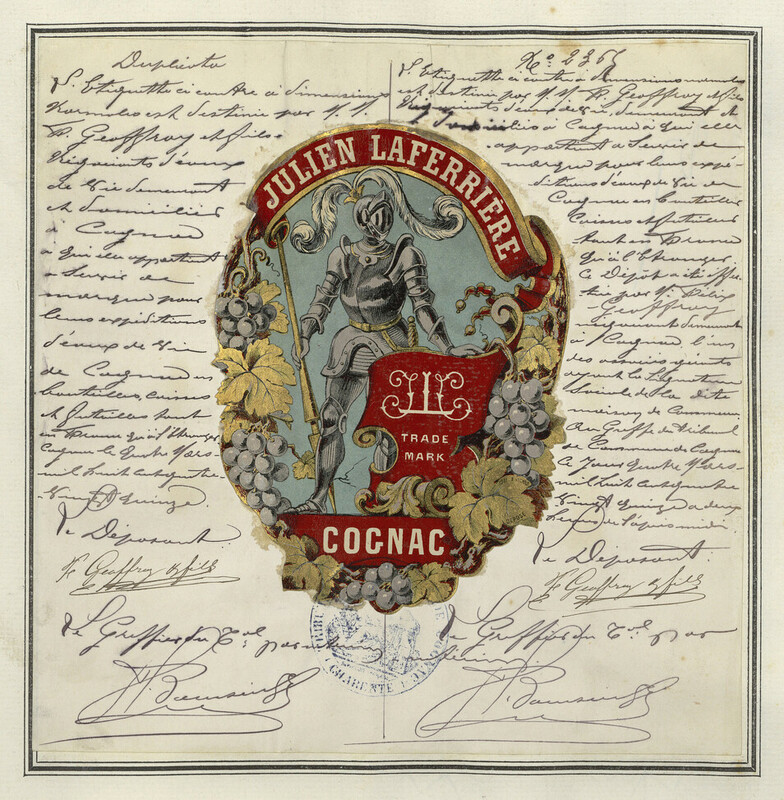 Duplicata
L'étiquette ci contre à dimensions
normales est destinée par M.M
F. Geoffroy et fils
négociants d'eaux
de vie demeurant
et domiciliés
à Cognac
à qui elle appartient
à servir de
marque pour
leurs expéditions
d'eaux de vie
de Cognac en
bouteilles, caisses
et futailles tant
en France qu'à l'étranger
Cognac le quatre Mars
mil huit cent quatre
vingt quinze.
Le Déposant
F. Geoffroy & fils
Le Greffier du
No 236
L'étiquette ci contre à dimensions normales
est destinée par M.M F. Geoffroy et fils
négociants d'eaux de vie, demeurant et
domiciliés à Cognac à qui elle
appartient à servir de
marque pour leurs expé-
ditions d'eaux de vie de
Cognac en bouteilles
caisses et futailles
tant en France
qu'à l'étranger
Ce dépôt a été effec-
tué par M. Félix
Geoffroy
négociant demeurant
à Cognac l'un
des associés
ayant la signature
sociale de la dite
maison de commerce.
Au Greffe du Tribunal
de Commerce de Cognac
ce jour quatre Mars
mil huit cent quatre
vingt quinze à deux
heures de l'après midi
Le Déposant
F. Geoffroy & fils
Le Greffier du
JULIEN LAFERRIÈRE
TRADE
MARK
COGNAC
CHARENTE